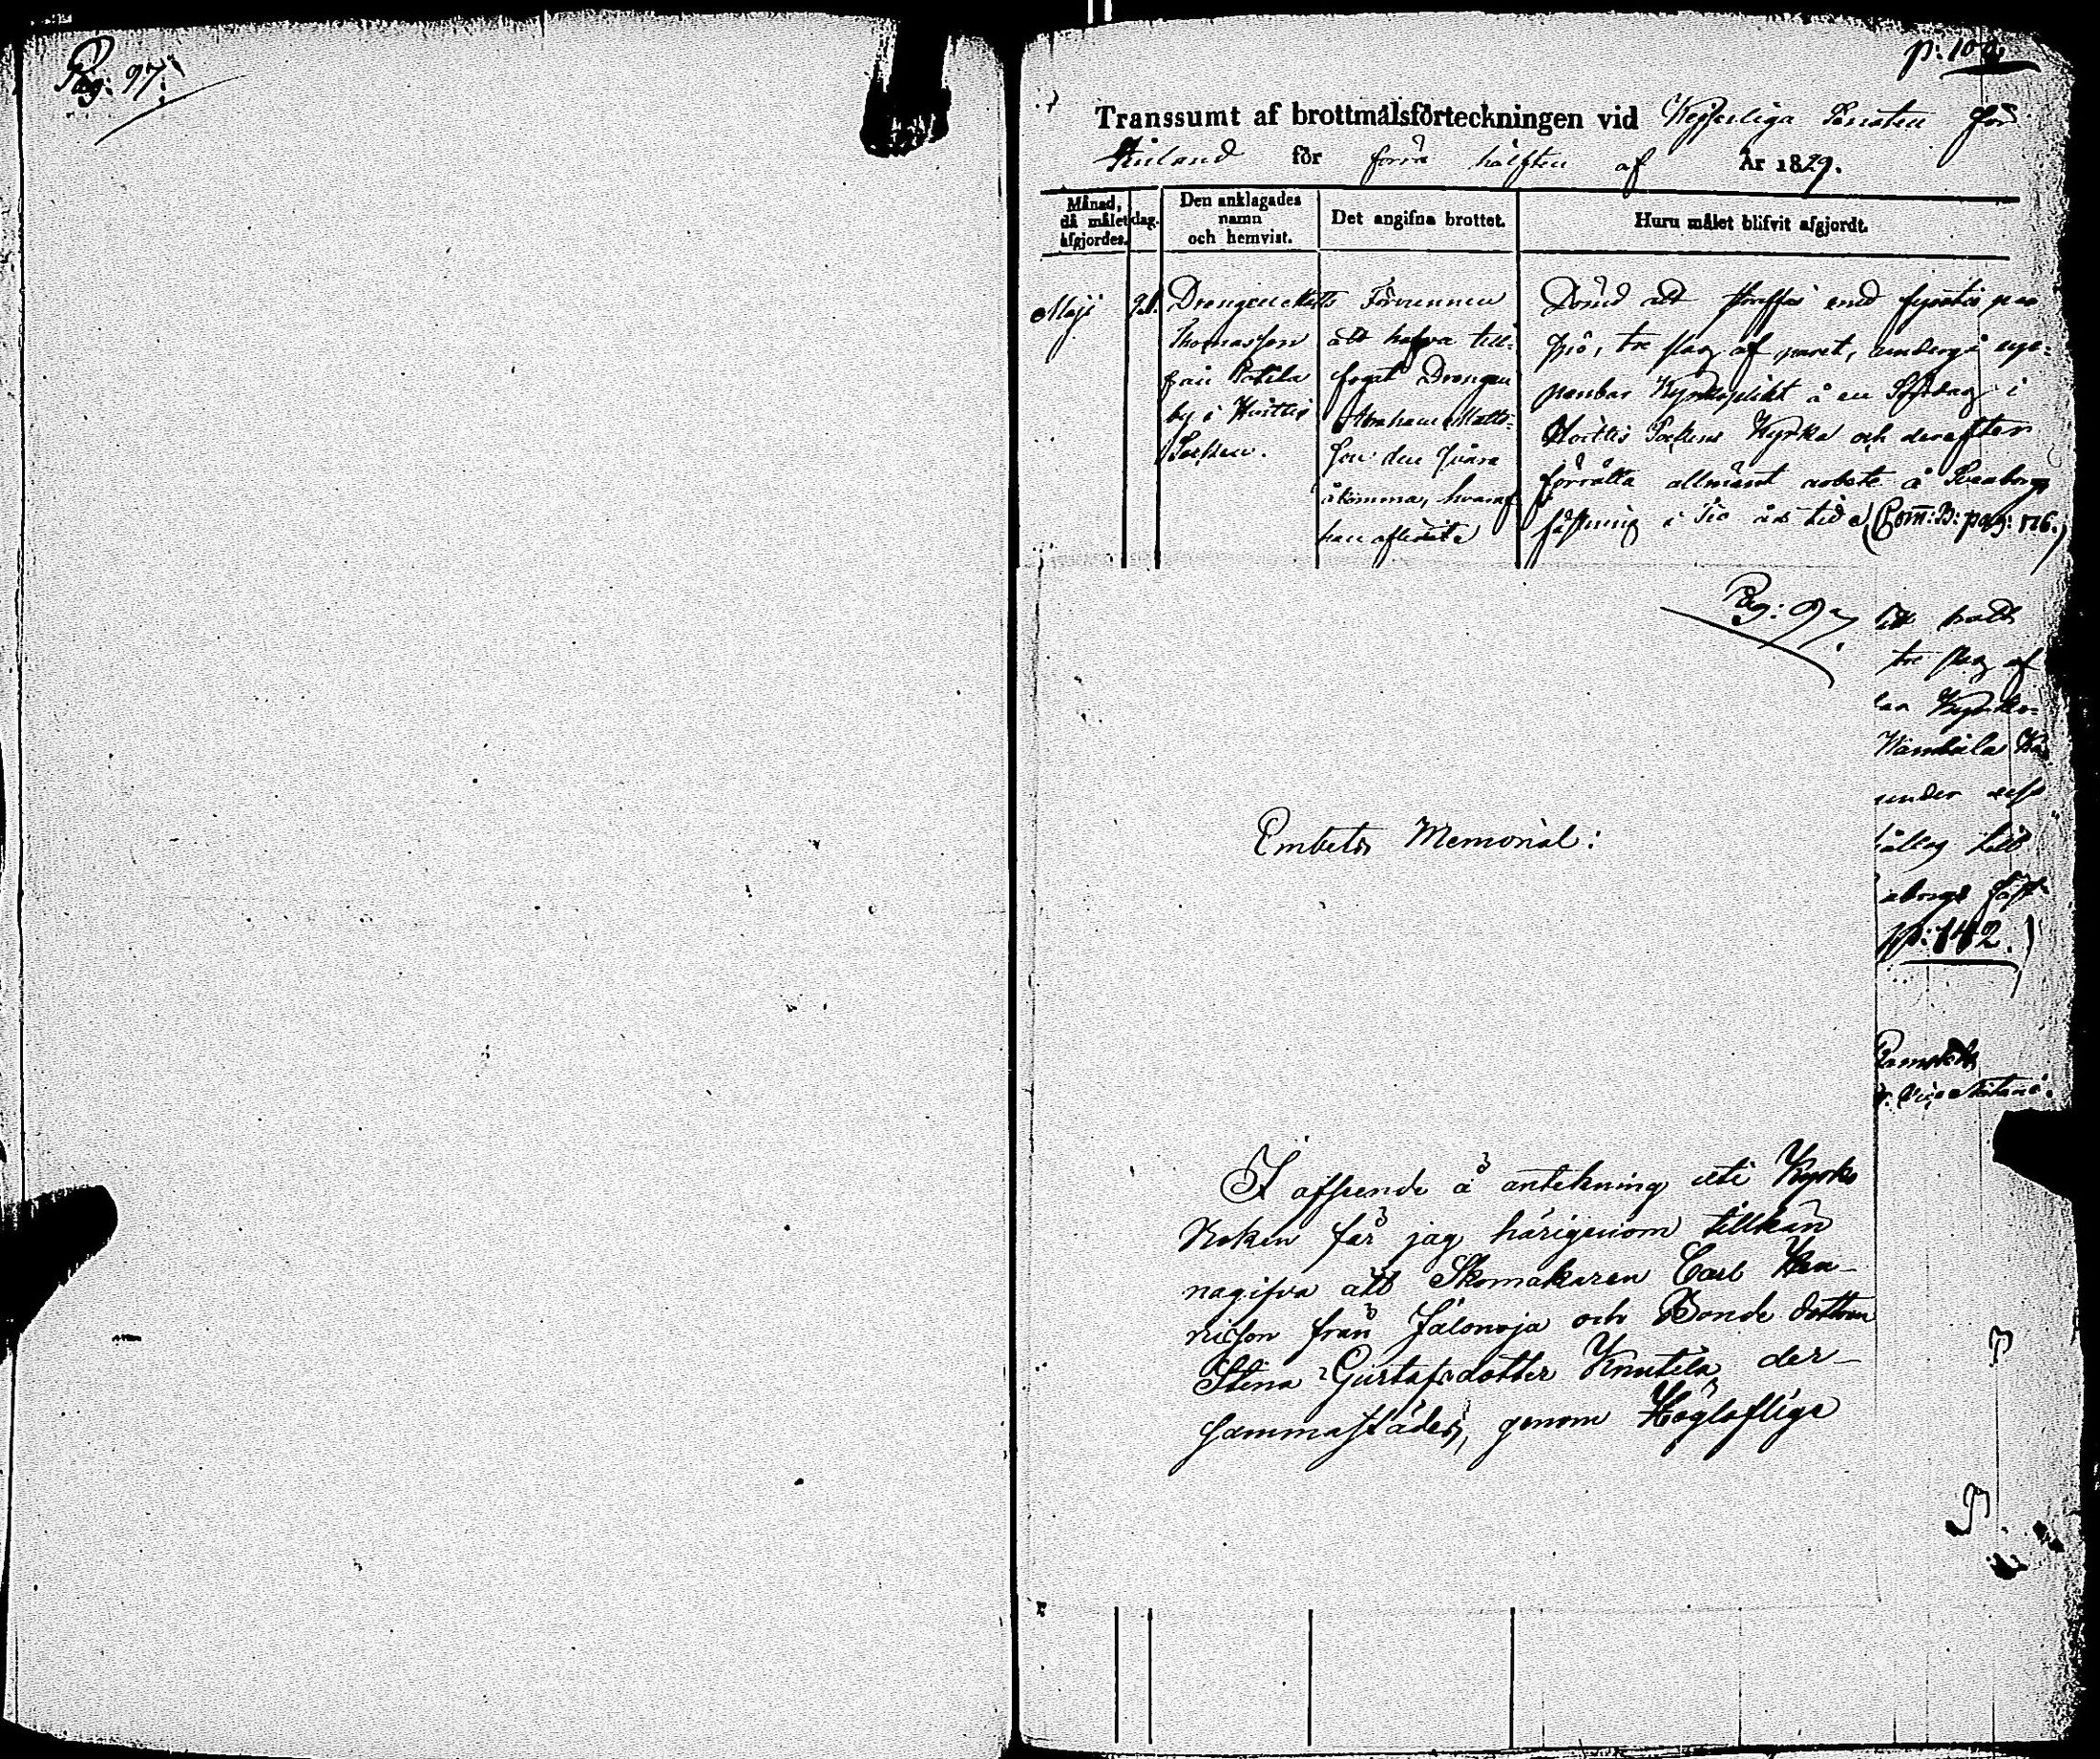 Pag: 97.
p: 100.
Transsumt af brottmålsförteckningen vid Kejserliga Senaten för
Finland för förra hälften af År 1829.
Månad, då målet afgjordes.
dag.
Den anklagades namn och hemvist.
Det angifna brottet.
Huru målet blifvit afgjordt.
Maji
21.
Drengen Matts
Thomasson
från
by i Huittis
Socken.
Förvunnen
att hafva till-
fogat Drengen
Abraham Matts-
son den svåra
åkomma, hvaraf
han aflidit.
Dömd att straffas med fyratio par
spö, tre slag af paret, undergå uppe-
penbar Kyrkoplikt å en Söndag i
Huittis Sockens Kyrka och derefter
förrätta allmänt arbete å Sveaborgs
fästning i Tio års tid. (Com̅: B: pag: 176.)
Pag: 97.
tre slag af
Kyrko-
under
håll. till
aborgs fäst-
p: 142.)
Embets Memorial:
I afseende å antekning uti Kyrko
Boken får jag härigenom tillkän
nagifva att Skomakaren Carl Hen-
ricson från Jalonoja och Bonde dottren
Stina Gustafsdotter Knutila, der-
sammastädes, genom Högloflige